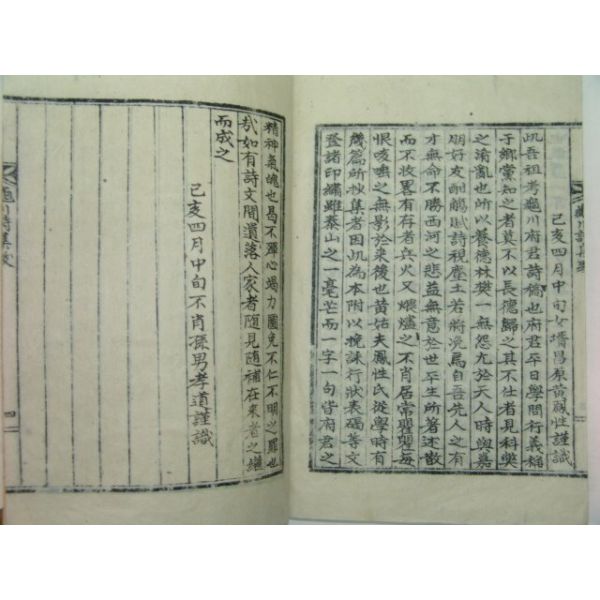 己亥四月中旬女壻昌原黃鳳性謹識
此吾祖考龜川府君詩稿也府君平日學問行義稱
于鄉黨知之者莫不以長德歸之其不仕者見科獘
之淆亂也所以養德林樊一無怨尤於天人時與嘉
朋好友酬觴賦詩視塵土若將浼焉自吾先人之有
才無命不勝西河之悲益無意於世平生所著述散
而不收畧有存者兵火又煨燼之不肖居常瞿瞿每
恨咳唾之無影於來後也黃姑夫鳳性氏從學時有
幾篇所抄集者因此為本附以挽誄行狀表碣等文
登諸印繡雖泰山之一毫芒而一字一句皆府君之
龜川詩集跋
精神氣魄也曷不殫心竭力圖免不仁不明之罪也
哉如有詩文間遺落人家者隨見隨補在來者之繼
而成之
己亥四月中旬不肖孫男孝道謹識
龜川詩集跋
四